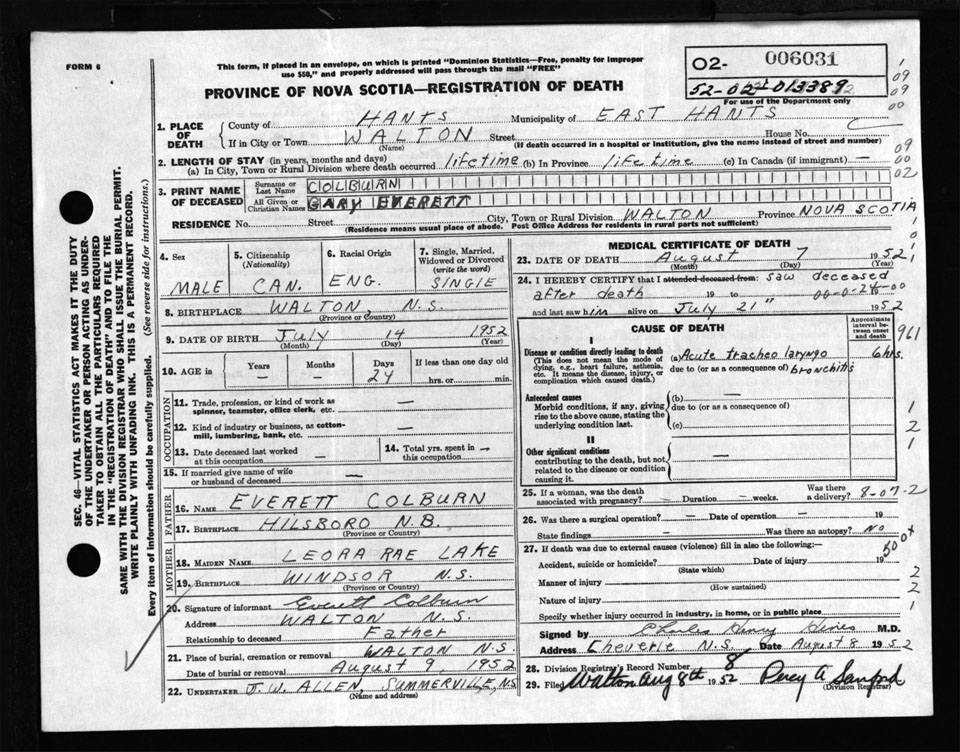 FORM 6
This form, if placed in an envelope, on which is printed "Dominion Statistics—Free, penalty for improper
use $50," and properly addressed will pass through the mail "FREE"
O2- 006031
52-02-013389
For use of the Department only
PROVINCE OF NOVA SCOTIA—REGISTRATION OF DEATH
1. PLACE OF DEATH
County of HANTS Municipality of EAST HANTS
If in City or Town WALTON Street House No.
(Name) (If death occurred in a hospital or institution, give the name instead of street and number)
2. LENGTH OF STAY (in years, months and days)
(a) In City, Town or Rural Division where death occurred lifetime (b) In Province lifetime (c) In Canada (if immigrant) —
3. PRINT NAME OF DECEASED
Surname or Last Name COLBURN
All Given or Christian Names GARY EVERETT
RESIDENCE No. Street City, Town or Rural Division WALTON Province NOVA SCOTIA
(Residence means usual place of abode. Post Office Address for residents in rural parts not sufficient)
4. Sex MALE
5. Citizenship (Nationality) CAN.
6. Racial Origin ENG.
7. Single, Married, Widowed or Divorced (write the word) SINGlE
8. BIRTHPLACE WALTON, N.S.
(Province or Country)
9. DATE OF BIRTH July 14 1952
(Month) (Day) (Year)
10. AGE in Years — Months — Days 24 If less than one day old
hrs. or min.
OCCUPATION
11. Trade, profession or kind of work as
spinner, teamster, office clerk, etc. —
12. Kind of industry or business, as cotton-
mill, lumbering, bank, etc. —
13. Date deceased last worked
at this occupation —
14. Total yrs. spent in
this occupation —
15. If married give name of wife
or husband of deceased —
FATHER
16. NAME EVERETT COLBURN
17. BIRTHPLACE HILSBORO N.B.
(Province or Country)
MOTHER
18. MAIDEN NAME LEORA RAE LAKE
19. BIRTHPLACE WINDSOR N.S.
(Province or Country)
20. Signature of informant Everett Colburn
Address WALTON N.S.
Relationship to deceased Father
21. Place of burial, cremation or removal WALTON N.S.
Date of burial or removal August 9, 1952
22. UNDERTAKER J. W. ALLEN, SUMMERVILLE, N.S.
(Name and address)
MEDICAL CERTIFICATE OF DEATH
23. DATE OF DEATH August 7 1952
(Month) (Day) (Year)
24. I HEREBY CERTIFY that I attended deceased from: saw deceased
after death 19 to 00-0-24-00 19
and last saw him alive on July 21" 1952
CAUSE OF DEATH
Approximate interval between onset and death
I
Disease or condition directly leading to death
(This does not mean the mode of dying, e.g., heart failure, asthenia, etc. It means the disease, injury, or complication which caused death.)
(a) Acute tracheo laryngo 6 hrs.
due to (or as a consequence of) bronchitis
Antecedent causes
Morbid conditions, if any, giving rise to the above cause, stating the underlying condition last.
(b) —
due to (or as a consequence of)
(c)
II
Other significant conditions
contributing to the death, but not related to the disease or condition causing it.
—
25. If a woman, was the death
associated with pregnancy? — Duration — weeks. Was there a delivery? 8-07-2
26. Was there a surgical operation? — Date of operation — 19
State findings — Was there an autopsy? No
27. If death was due to external causes (violence) fill in also the following:—
Accident, suicide or homicide? Date of injury 19
(State which)
Manner of injury
(How sustained)
Nature of injury
Specify whether injury occurred in industry, in home, or in public place
Signed by Charles Henry M.D.
Address Cheverie N.S. Date August 8 1952
28. Division Registrar's Record Number 8
29. Filed Walton Aug 8th 1952 Percy A Sanford
(Division Registrar)
SEC. 46—VITAL STATISTICS ACT MAKES IT THE DUTY
OF THE UNDERTAKER OR PERSON ACTING AS UNDER-
TAKER TO OBTAIN ALL THE PARTICULARS REQUIRED
IN THE "REGISTRATION OF DEATH" AND TO FILE THE
SAME WITH THE DIVISION REGISTRAR WHO SHALL ISSUE THE BURIAL PERMIT.
WRITE PLAINLY WITH UNFADING INK. THIS IS A PERMANENT RECORD.
Every item of information should be carefully supplied. (See reverse side for instructions.)
1
09
09
00
09
00
02
1
961
1
2
1
2
2
1